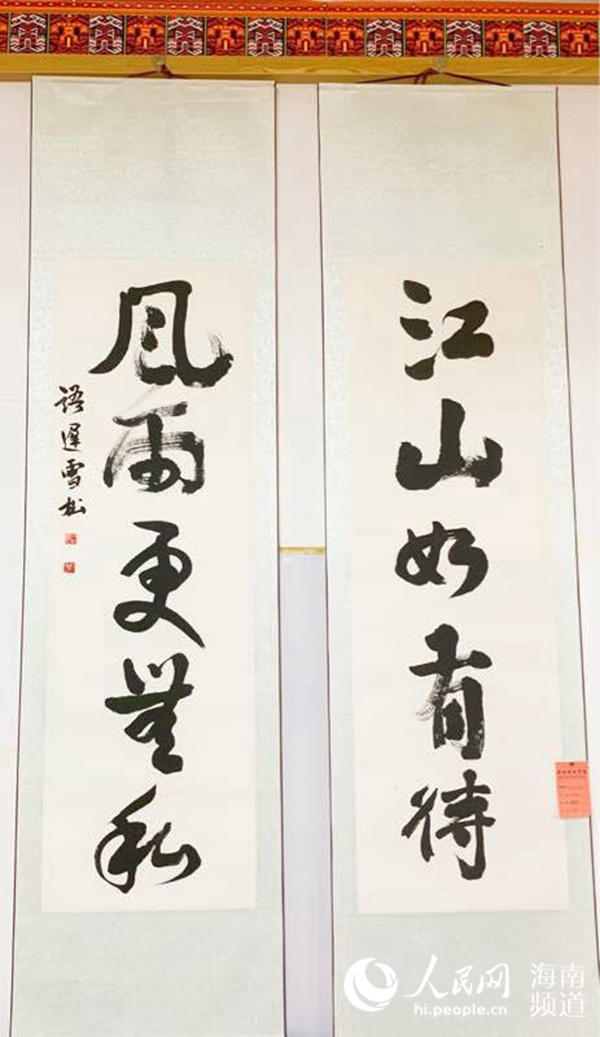 江山如有待
風雨更無私
語遲雪松
人民网
hi.people.cn
海南
频道